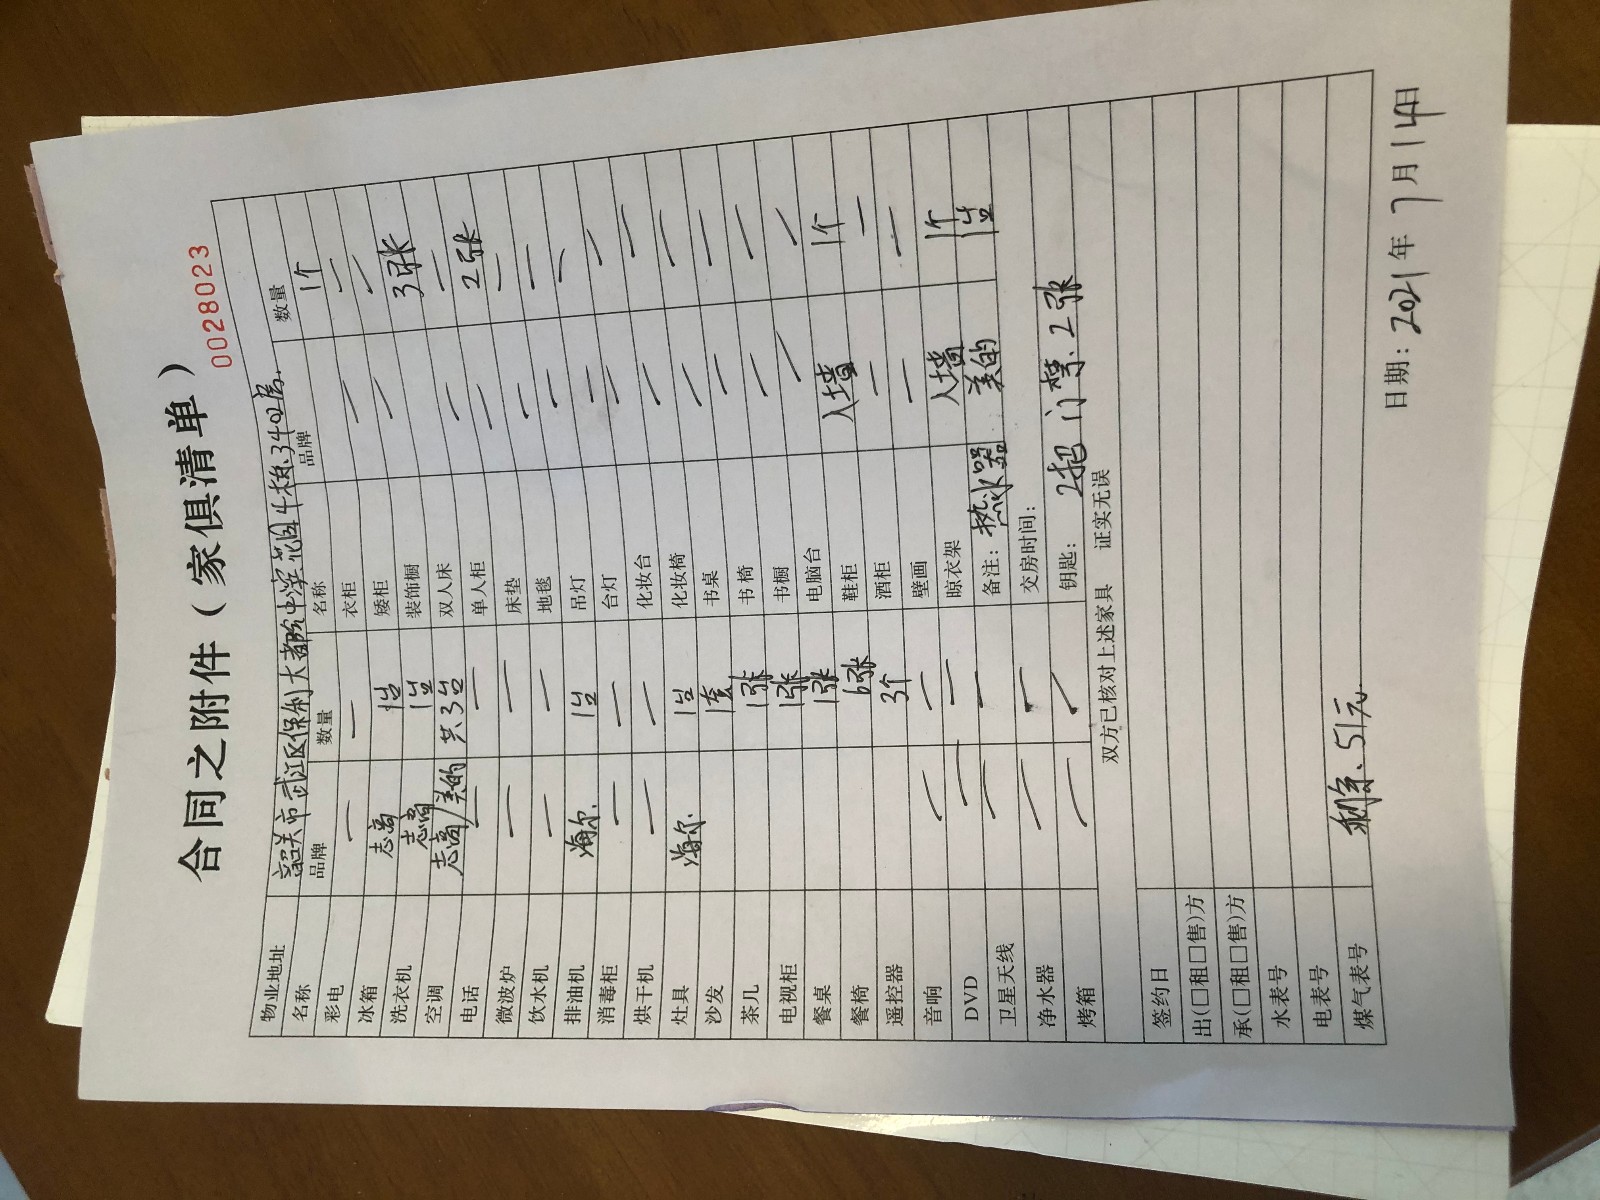 合同之附件（家俱清单）
0028023
物业地址 韶关市武江区保利大都 花园4栋3402房
名称 品牌 数量 名称 品牌 数量
彩电 — — 衣柜 1个
冰箱 志高 1台 矮柜 — —
洗衣机 志高 1台 装饰橱 — —
空调 志高/美的 共3台 双人床 3张
电话 — — 单人柜 — —
微波炉 — — 床垫 — 2张
饮水机 — — 地毯 — —
排油机 海尔 1台 吊灯 — —
消毒柜 — — 台灯 — —
烘干机 — — 化妆台 — —
灶具 海尔 1台 化妆椅 — —
沙发 1套 书桌 — —
茶几 1张 书椅 — —
电视柜 1张 书橱 — —
餐桌 1张 电脑台 — —
餐椅 6张 鞋柜 入墙 1个
遥控器 3个 酒柜 — —
音响 — — 壁画 — —
DVD — — 晾衣架 入墙 1个
卫星天线 — — 备注：热水器 美的 1台
净水器 — — 交房时间：
烤箱 — — 钥匙：2把 门禁2张
双方已核对上述家具 证实无误
签约日
出(□租□售)方
承(□租□售)方
水表号
电表号
煤气表号 剩余、51元
日期：2021年7月14日